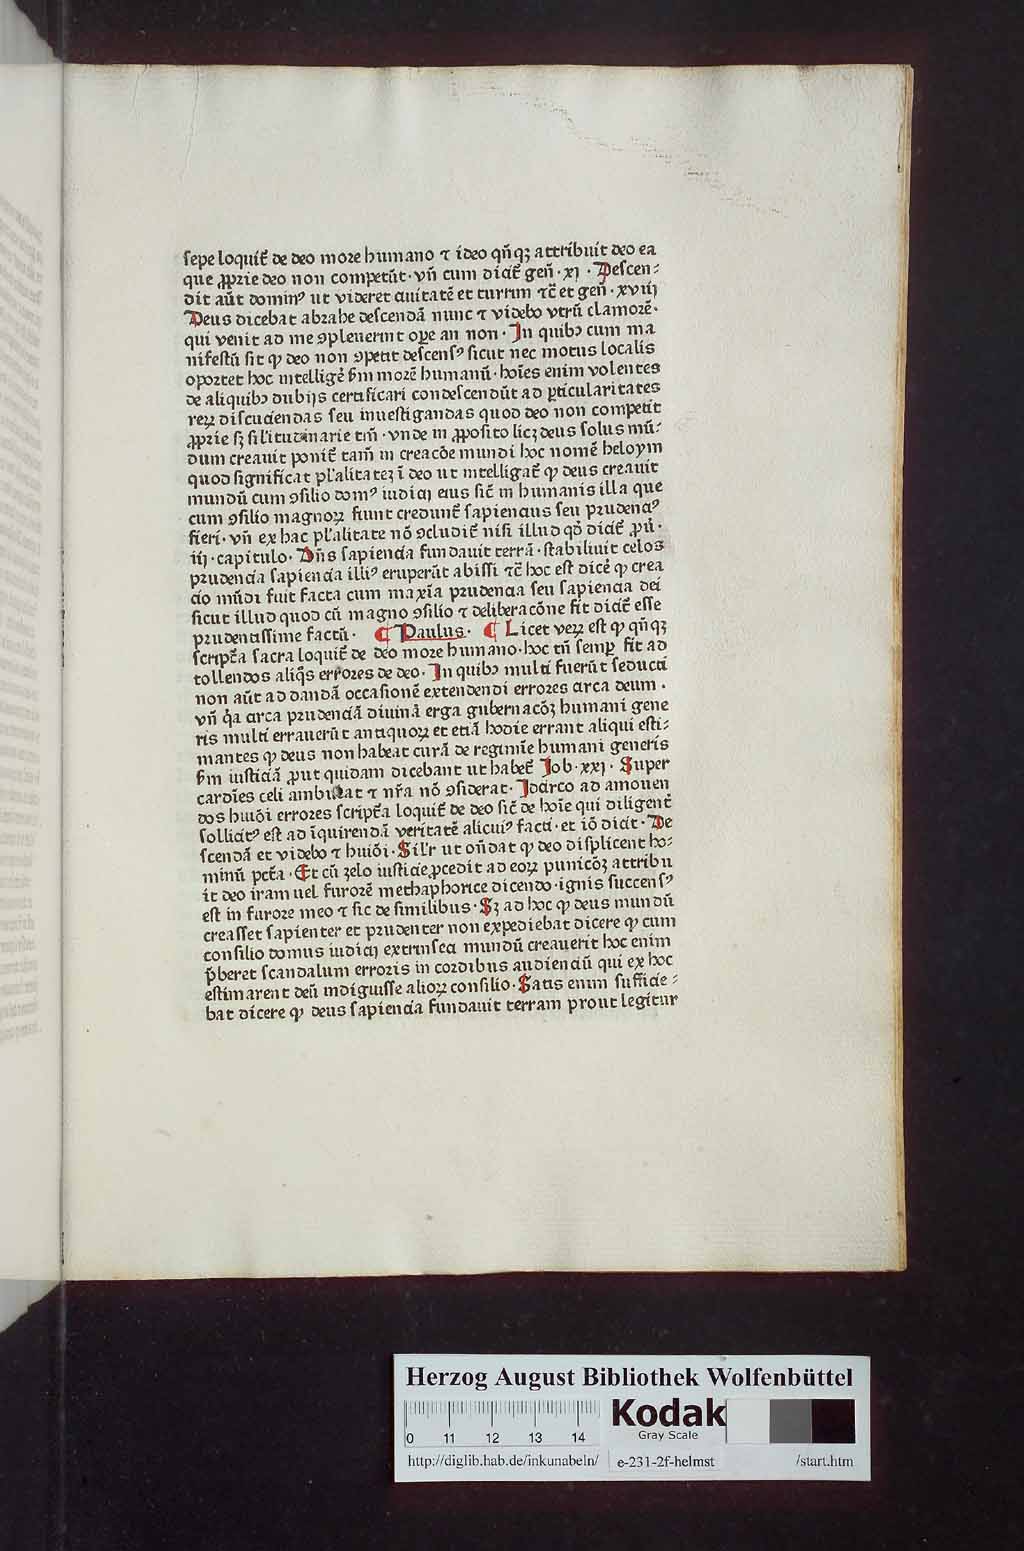 sepe loquit᷑ de deo more humano ⁊ ideo qñqꝫ attribuit deo ea
que ꝓprie deo non competūt · vñ cum dicit᷑ geñ · xj · Descen⸗
dit aūt dominꝰ ut videret ciuitatē et turrim ⁊c̄ et geñ · xviij
Deus dicebat abrahe descendā nunc ⁊ videbo vtrū clamorē ·
qui venit ad me ꝯpleuerint oꝑe an non · In quibꝰ cum ma
nifestū sit ꝙ deo non ꝯpetit descensꝰ sicut nec motus localis
oportet hoc intelligēẜm morē humanū · hoīes enim volentes
de aliquibꝰ dubijs certificari condescendūt ad ꝑticularitates
reꝝ discuciendas seu inuestigandas quod deo non competit
ꝓprie sꝫ sil'itudinarie tm̄ · vnde in ꝓposito licꝫ deus solus mū⸗
dum creauit ponit᷑ tam̄ in creacōe mundi hoc nomē heloym
quod significat pl'alitateꝫ ī deo ut intelligat᷑ ꝙ deus creauit
mundū cum ꝯsilio domꝰ iudicij eius sic̄ in humanis illa que
cum ꝯsilio magnoꝝ fiunt credunt᷑ sapiencius seu prudenciꝰ
fieri · vñ ex hac pl'alitate nō ꝯcludit᷑ nisi illud qd̄ dicit᷑ ꝓū ·
iij · capitulo · Dn̄s sapiencia fundauit terrā · stabiliuit celos
prudencia sapiencia illiꝰ eruperūt abissi ⁊c̄ hoc est dicē ꝙ crea
cio mūdi fuit facta cum maxīa prudencia seu sapiencia dei
sicut illud quod cū magno ꝯsilio ⁊ deliberacōne fit dicit᷑ esse
prudentissime factū · ¶ Paulus · ¶ Licet veꝝ est ꝙ qñqꝫ
script̄a sacra loquit᷑ de deo more humano · hoc tn̄ semꝑ fit ad
tollendos aliq̄s errores de deo · In quibꝰ multi fuerūt seducti
non aūt ad dandā occasionē extendendi errores circa deum .
vñ q̄a circa prudenciā diuinā erga gubernacōꝫ humani gene
ris multi errauerūt antiquoꝝ et etiā hodie errant aliqui esti⸗
mantes ꝙ deus non habeat curā de regimīe humani generis
ẜm iusticiā ꝓut quidam dicebant ut habet᷑ Job · xxj · Super
cardīes celi ambulat ⁊ nr̄a nō ꝯsiderat · Idcirco ad amouen
dos hui᷒ōi errores script̄a loquit᷑ de deo sic̄ de hoīe qui diligent᷑
sollicitꝰ est ad īquirendā veritatē alicuiꝰ facti · et iō dicit · De
scendā et videbo ⁊ hui᷒ōi · Sil'r ut on̄dat ꝙ deo displicent ho⸗
minū pct̄a · Et cū zelo iusticie ꝓcedit ad eoꝝ punicōꝫ attribu
it deo iram uel furorē methaphorice dicendo · ignis succensꝰ
est in furore meo ⁊ sic de similibus · Sꝫ ad hoc ꝙ deus mundū
creasset sapienter et prudenter non expediebat dicere ꝙ cum
consilio domus iudicij extrinseci mundū creauerit hoc enim
p̄beret scandalum erroris in cordibus audienciū qui ex hoc
estimarent deū indiguisse alioꝝ consilio · Satis enim sufficie⸗
bat dicere ꝙ deus sapiencia fundauit terram prout legitur
Herzog August Bibliothek Wolfenbüttel
0 11 12 13 14
Kodak
Gray Scale
http://diglib.hab.de/inkunabeln/ e-231-2f-helmst /start.htm